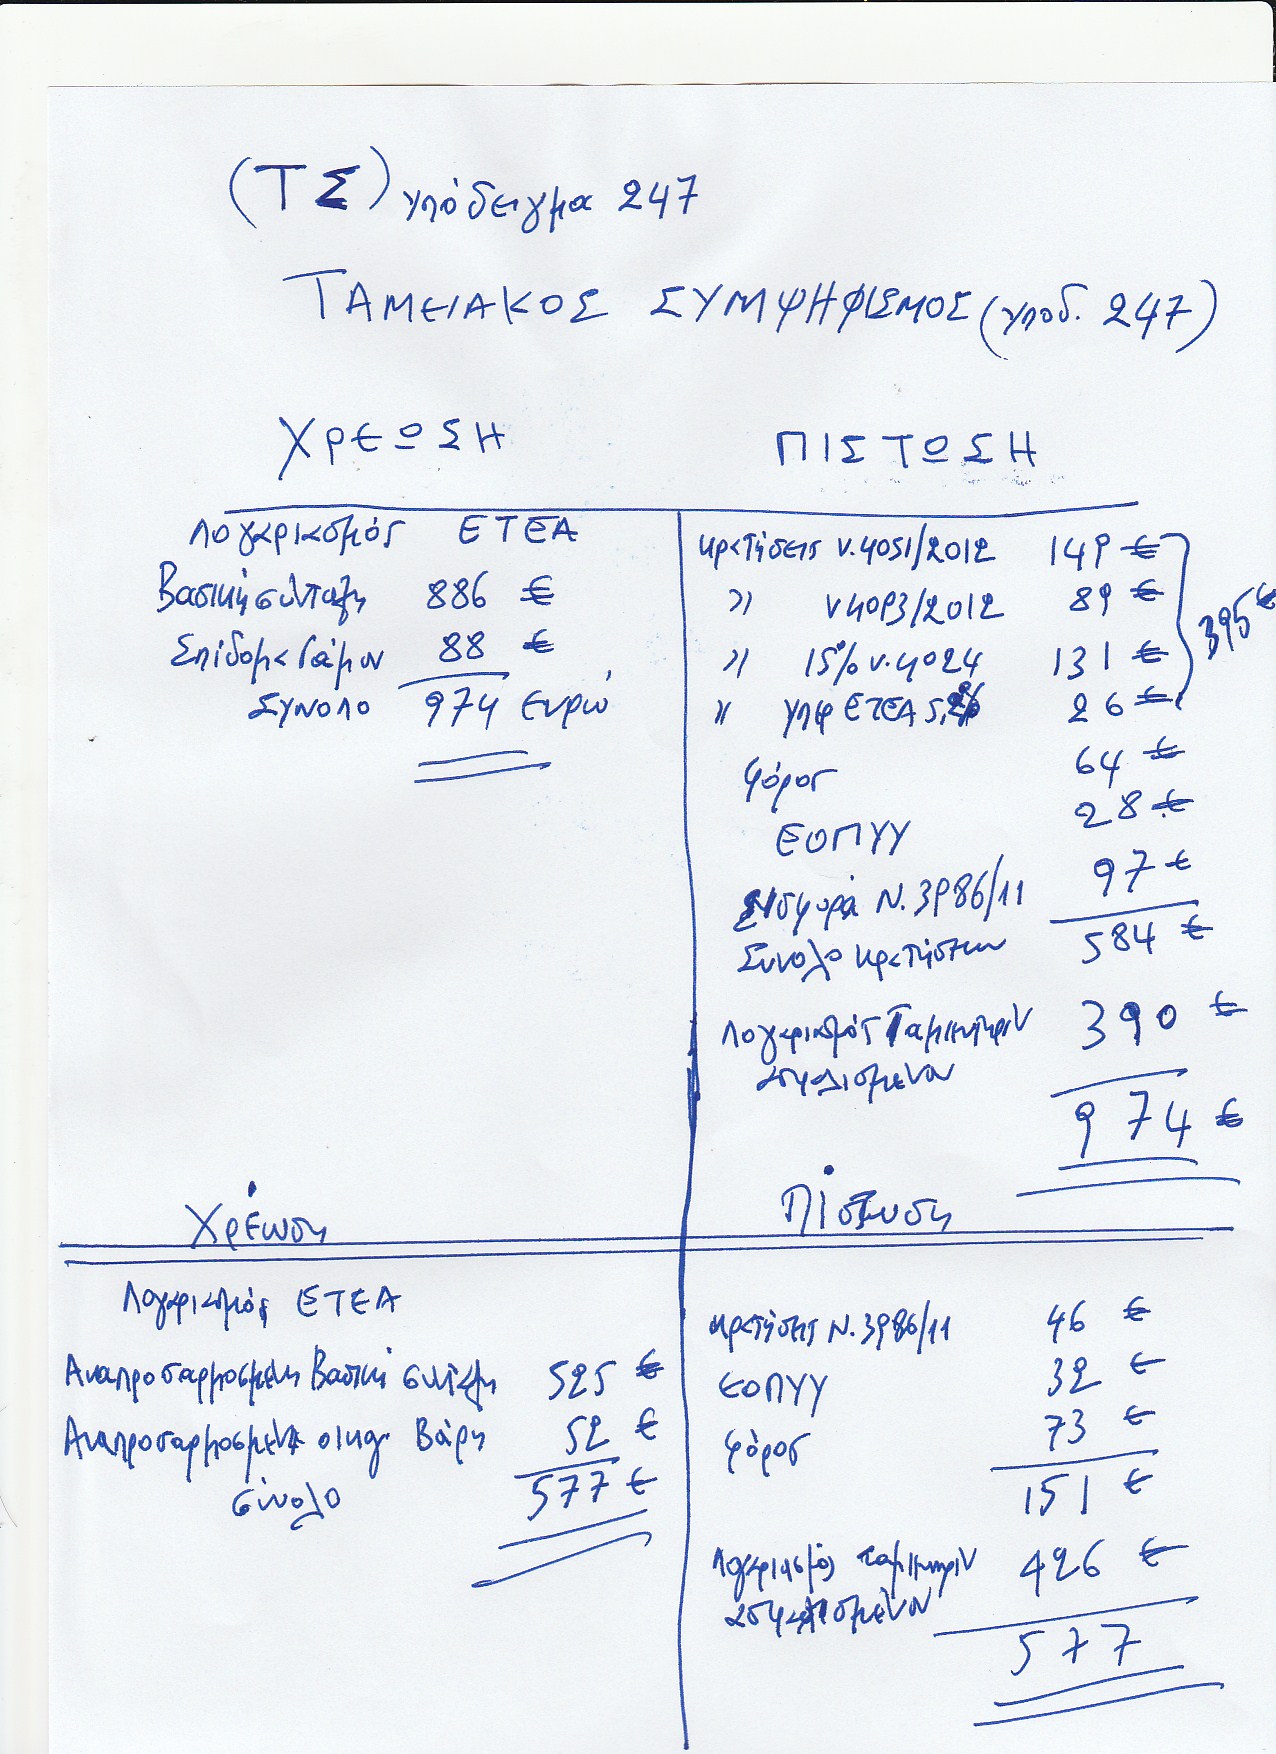 (ΤΣ) υπόδειγμα 247
ΤΑΜΕΙΑΚΟΣ ΣΥΜΨΗΦΙΣΜΟΣ (υποδ. 247)
ΧΡΕΩΣΗ
Λογαριασμός ΕΤΕΑ
Βασική σύνταξη 886 €
Επίδομα Γάμου 88 €
ΣΥΝΟΛΟ 974 ευρώ
ΠΙΣΤΩΣΗ
κρατήσεις ν.4051/2012 149 €
" ν4093/2012 89 €
" 15% ν.4024 131 €
" υπέρ ΕΤΕΑ 5,2% 26 €
395 €
Φόρος 64 €
ΕΟΠΥΥ 28 €
Εισφορά Ν.3986/11 97 €
Συνολο κρατήσεων 584 €
Λογαριασμός Ταμιευτηρίου
ασφαλισμένου 390 €
974 €
Χρέωση
Λογαριασμός ΕΤΕΑ
Αναπροσαρμοσμένη Βασική σύνταξη 525 €
Αναπροσαρμοσμένα οικογ. Βάρη 52 €
σύνολο 577 €
Πίστωση
κρατήσεις Ν.3986/11 46 €
ΕΟΠΥΥ 32 €
φόρος 73 €
151 €
Λογαριασμός ταμιευτηρίου 426 €
ασφαλισμένου
577